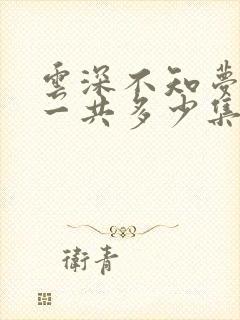 雲深不知夢
一共多少集
衛青